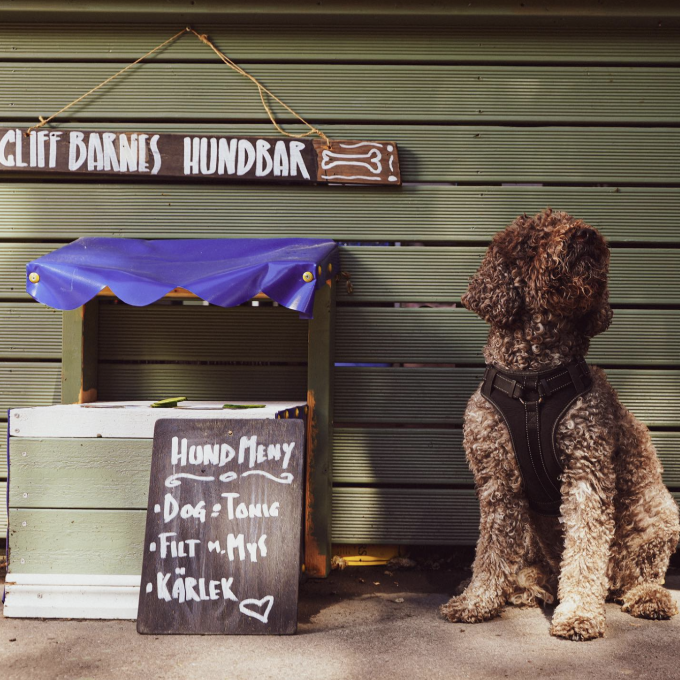 CLIFF BARNES HUNDBAR
HUND MENY
• DOG & TONIC
• FILT M. MYS
• KÄRLEK